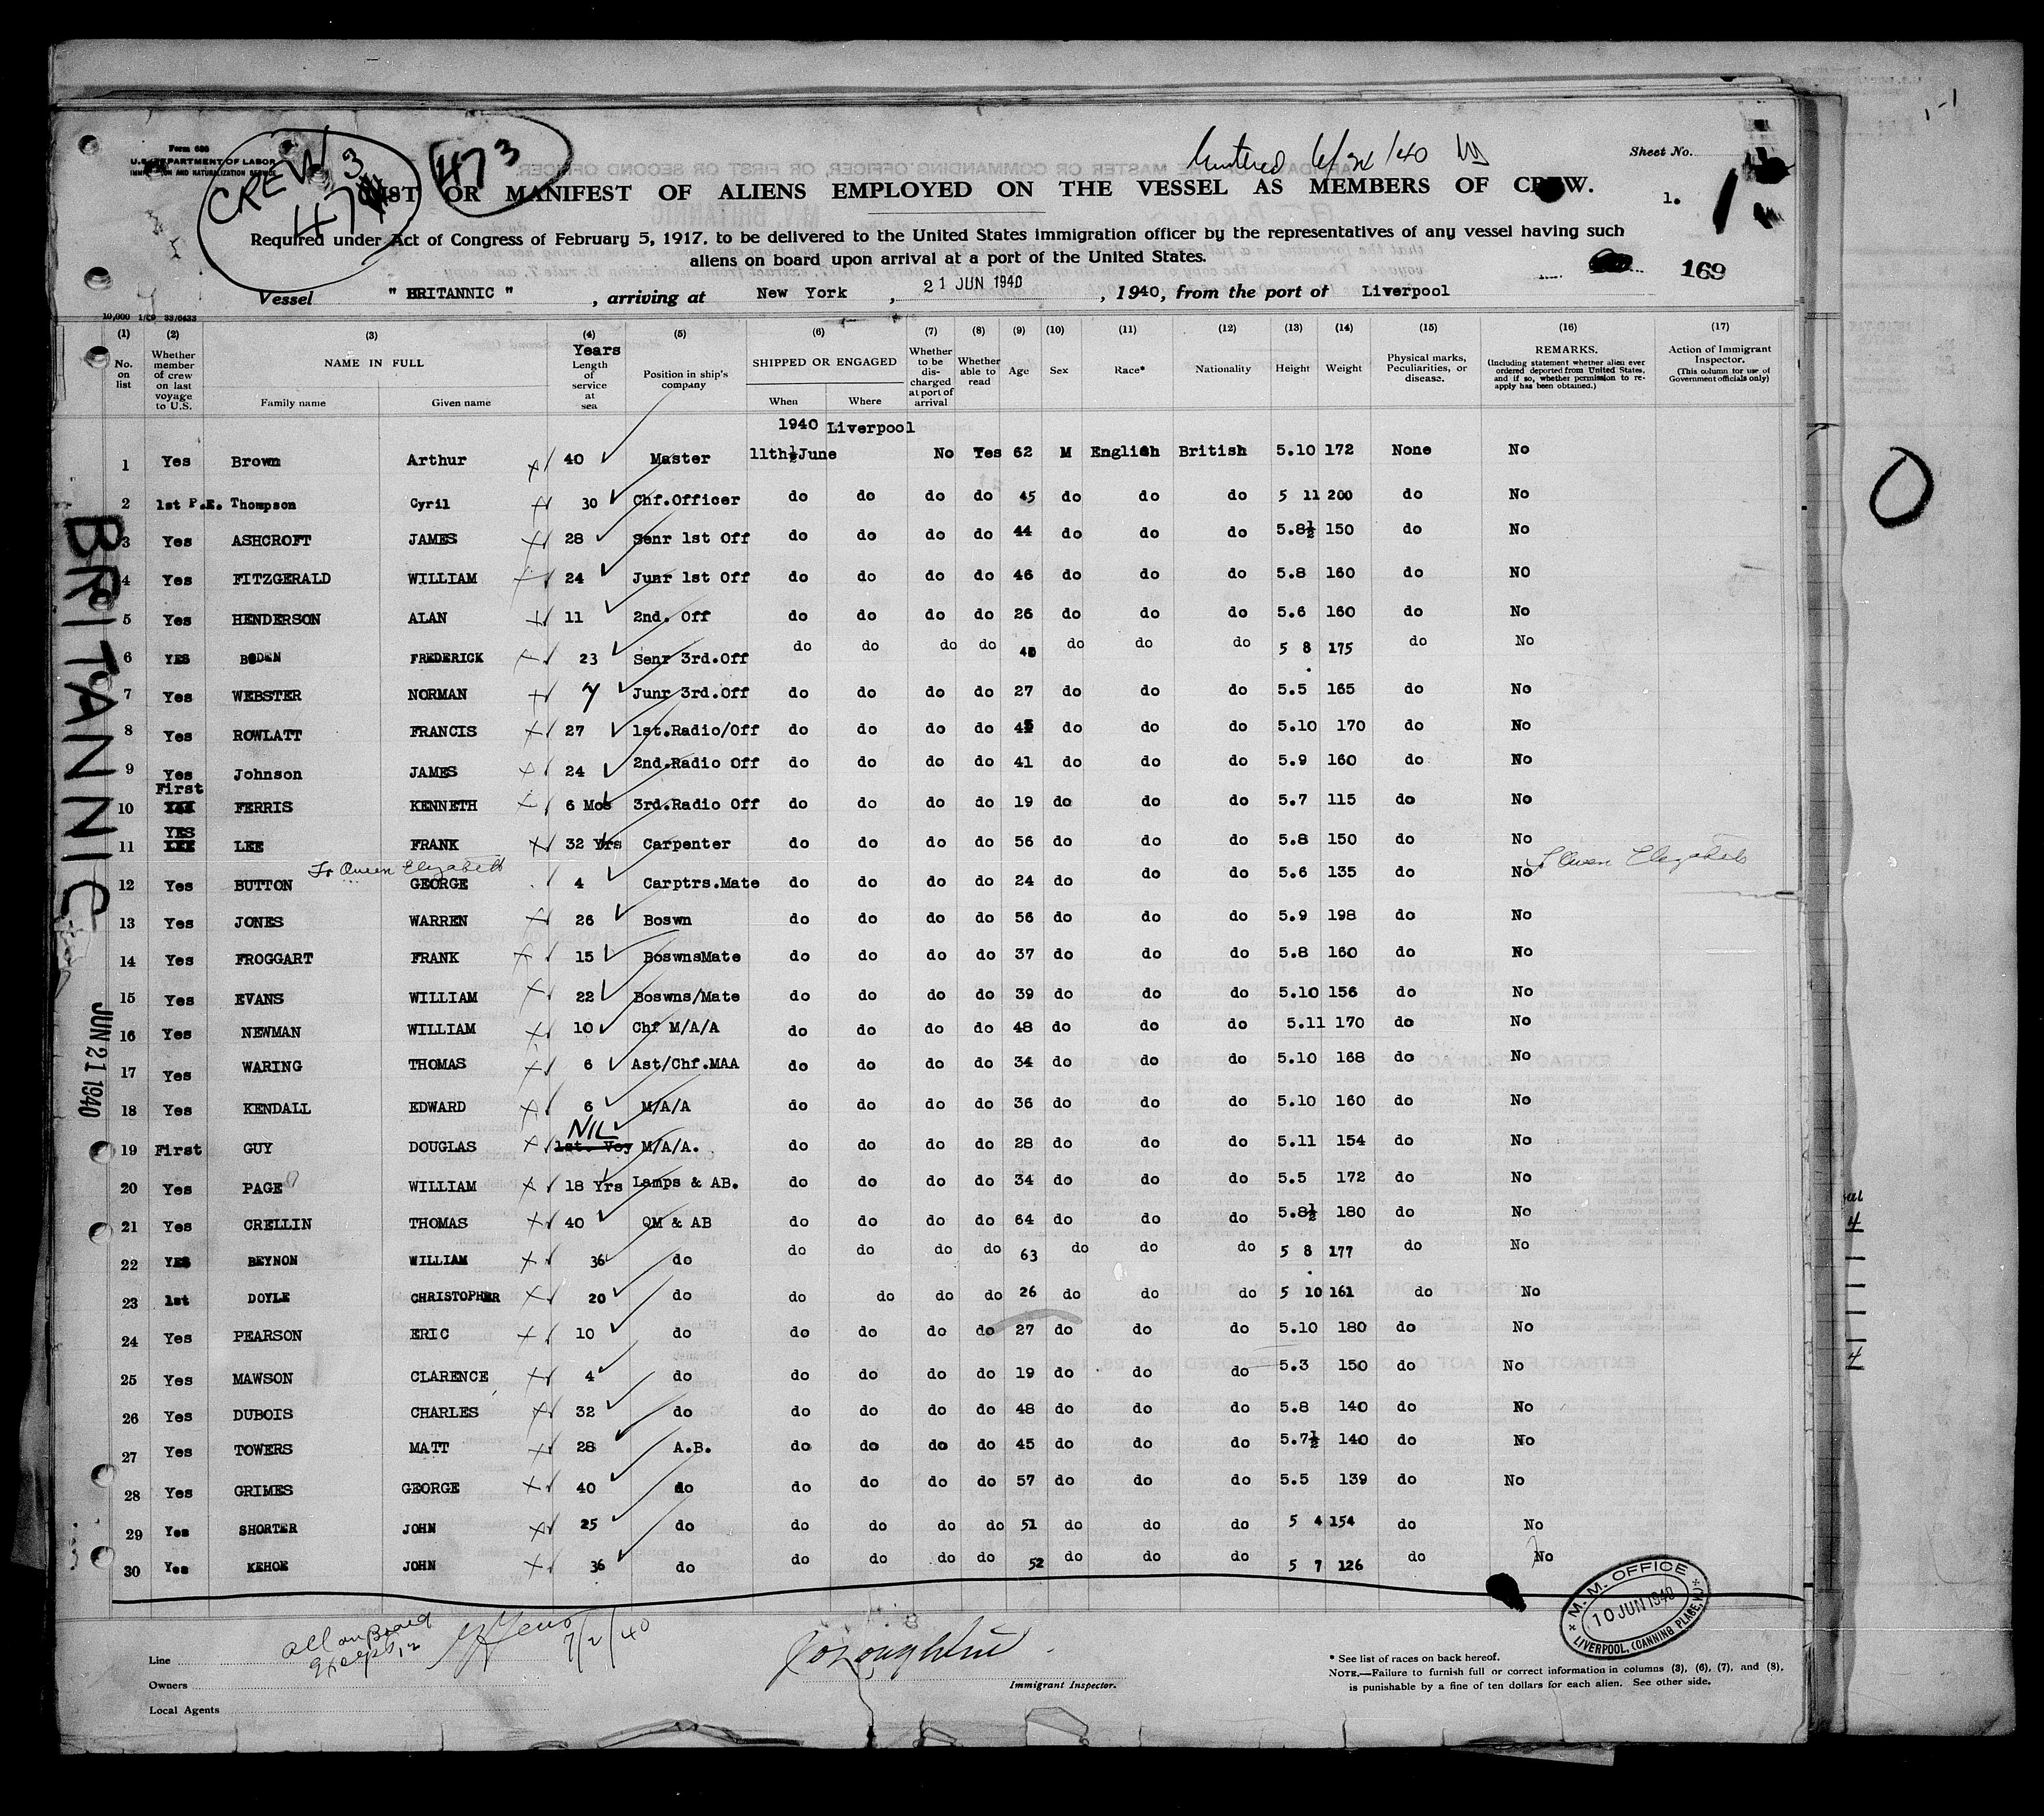 Form 686
U.S. DEPARTMENT OF LABOR
IMMIGRATION AND NATURALIZATION SERVICE
CREW
473
Entered
Sheet No.
LIST OR MANIFEST OF ALIENS EMPLOYED ON THE VESSEL AS MEMBERS OF CREW.
1. 1
Required under Act of Congress of February 5, 1917, to be delivered to the United States immigration officer by the representatives of any vessel having such
aliens on board upon arrival at a port of the United States.
169
Vessel " BRITANNIC " , arriving at New York , 21 JUN 1940 , 1940, from the port of Liverpool
(1) (2) (3) (4) (5) (6) (7) (8) (9) (10) (11) (12) (13) (14) (15) (16) (17)
No. on list
Whether member of crew on last voyage to U.S.
NAME IN FULL
Family name Given name
Years Length of service at sea
Position in ship's company
SHIPPED OR ENGAGED
When Where
Whether to be discharged at port of arrival
Whether able to read
Age
Sex
Race*
Nationality
Height
Weight
Physical marks, Peculiarities, or disease.
REMARKS.
(Including statement whether alien ever ordered deported from United States, and if so, whether permission to reapply has been obtained.)
Action of Immigrant Inspector.
(This column for use of Government officials only)
1940 Liverpool
1 Yes Brown Arthur 40 Master 11th June No Yes 62 M English British 5.10 172 None No
2 1st P.E. Thompson Cyril 30 Chf.Officer do do do do 45 do do do 5 11 200 do No
3 Yes ASHCROFT JAMES 28 Senr 1st Off do do do do 44 do do do 5.8½ 150 do No
4 Yes FITZGERALD WILLIAM 24 Junr 1st Off do do do do 46 do do do 5.8 160 do NO
5 Yes HENDERSON ALAN 11 2nd. Off do do do do 26 do do do 5.6 160 do No
6 YES BODEN FREDERICK 23 Senr 3rd.Off do do do do do do do 5 8 175 do No
7 Yes WEBSTER NORMAN 7 Junr 3rd.Off do do do do 27 do do do 5.5 165 do No
8 Yes ROWLATT FRANCIS 27 1st.Radio/Off do do do do do do do 5.10 170 do No
9 Yes Johnson JAMES 24 2nd.Radio Off do do do do 41 do do do 5.9 160 do No
10 First FERRIS KENNETH 6 Mos 3rd.Radio Off do do do do 19 do do do 5.7 115 do No
11 YES LEE FRANK 32 Yrs Carpenter do do do do 56 do do do 5.8 150 do No
To Queen Elizabeth
12 Yes BUTTON GEORGE 4 Carptrs.Mate do do do do 24 do do do 5.6 135 do No Queen Elizabeth
13 Yes JONES WARREN 26 Boswn do do do do 56 do do do 5.9 198 do No
14 Yes FROGGART FRANK 15 BoswnsMate do do do do 37 do do do 5.8 160 do No
15 Yes EVANS WILLIAM 22 Boswns/Mate do do do do 39 do do do 5.10 156 do No
16 Yes NEWMAN WILLIAM 10 Chf M/A/A do do do do 48 do do do 5.11 170 do No
17 Yes WARING THOMAS 6 Ast/Chf.MAA do do do do 34 do do do 5.10 168 do No
18 Yes KENDALL EDWARD 6 M/A/A do do do do 36 do do do 5.10 160 do No
NIL
19 First GUY DOUGLAS 1st. Voy M/A/A. do do do do 28 do do do 5.11 154 do No
20 Yes PAGE WILLIAM 18 Yrs Lamps & AB. do do do do 34 do do do 5.5 172 do No
21 Yes CRELLIN THOMAS 40 QM & AB do do do do 64 do do do 5.8½ 180 do No
22 YES BEYNON WILLIAM 36 do do do do do 63 do do do 5 8 177 do No
23 1st DOYLE CHRISTOPHER 20 do do do do do 26 do do do 5 10 161 do No
24 Yes PEARSON ERIC 10 do do do do do 27 do do do 5.10 180 do No
25 Yes MAWSON CLARENCE 4 do do do do do 19 do do do 5.3 150 do No
26 Yes DUBOIS CHARLES 32 do do do do do 48 do do do 5.8 140 do No
27 Yes TOWERS MATT 28 A.B. do do do do 45 do do do 5.7½ 140 do No
28 Yes GRIMES GEORGE 40 do do do do do 57 do do do 5.5 139 do No
29 Yes SHORTER JOHN 25 do do do do do 51 do do do 5 4 154 do No
30 Yes KEHOE JOHN 36 do do do do do 52 do do do 5 7 126 do No
BRITANNIC
JUN 21 1940
M. M. OFFICE
10 JUN 1940
LIVERPOOL, (CANNING PLACE, W.)
all on Board
Except 12
7/2/40
Line
Owners
Local Agents
Immigrant Inspector.
* See list of races on back hereof.
NOTE.—Failure to furnish full or correct information in columns (3), (6), (7), and (8),
is punishable by a fine of ten dollars for each alien. See other side.